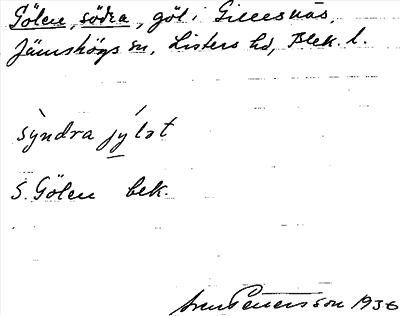 Gölen, södra, göl i Gillesnäs,
Jämshögs sn, Listers hd, Blek. l.
sỳndra jýlat
S. Gölen bek.
Sven Petersson 1936